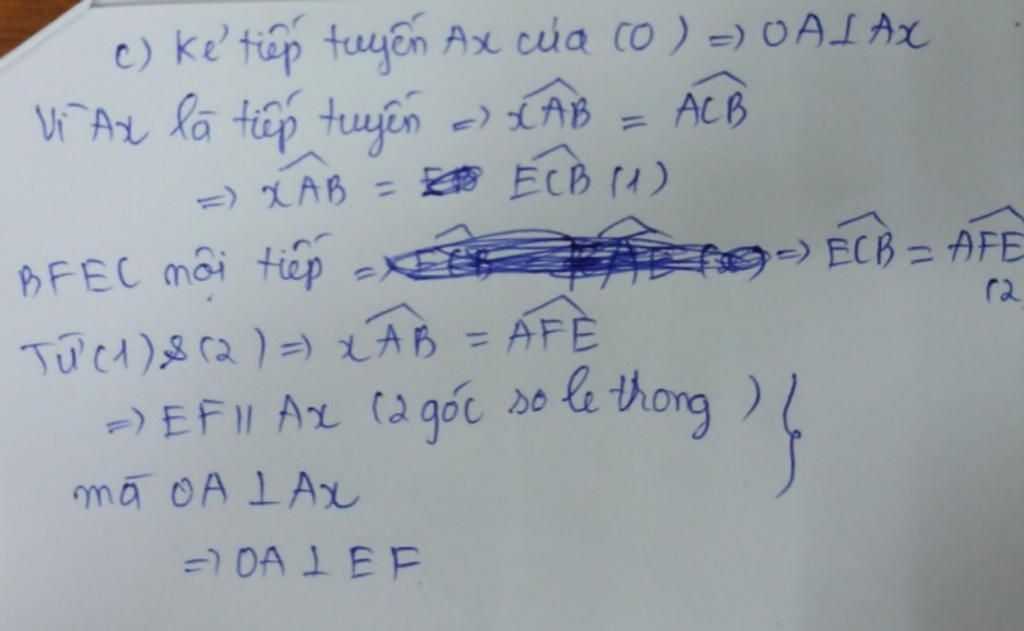 c) Kẻ tiếp tuyến Ax của (O) => OA⊥Ax
Vì Ax là tiếp tuyến => xAB = ACB
=> xAB = ECB (1)
BFEC nội tiếp => => ECB = AFE
(2
Từ (1) & (2) => xAB = AFE
=> EF // Ax (2 góc so le trong) }
mà OA ⊥ Ax
=> OA ⊥ EF